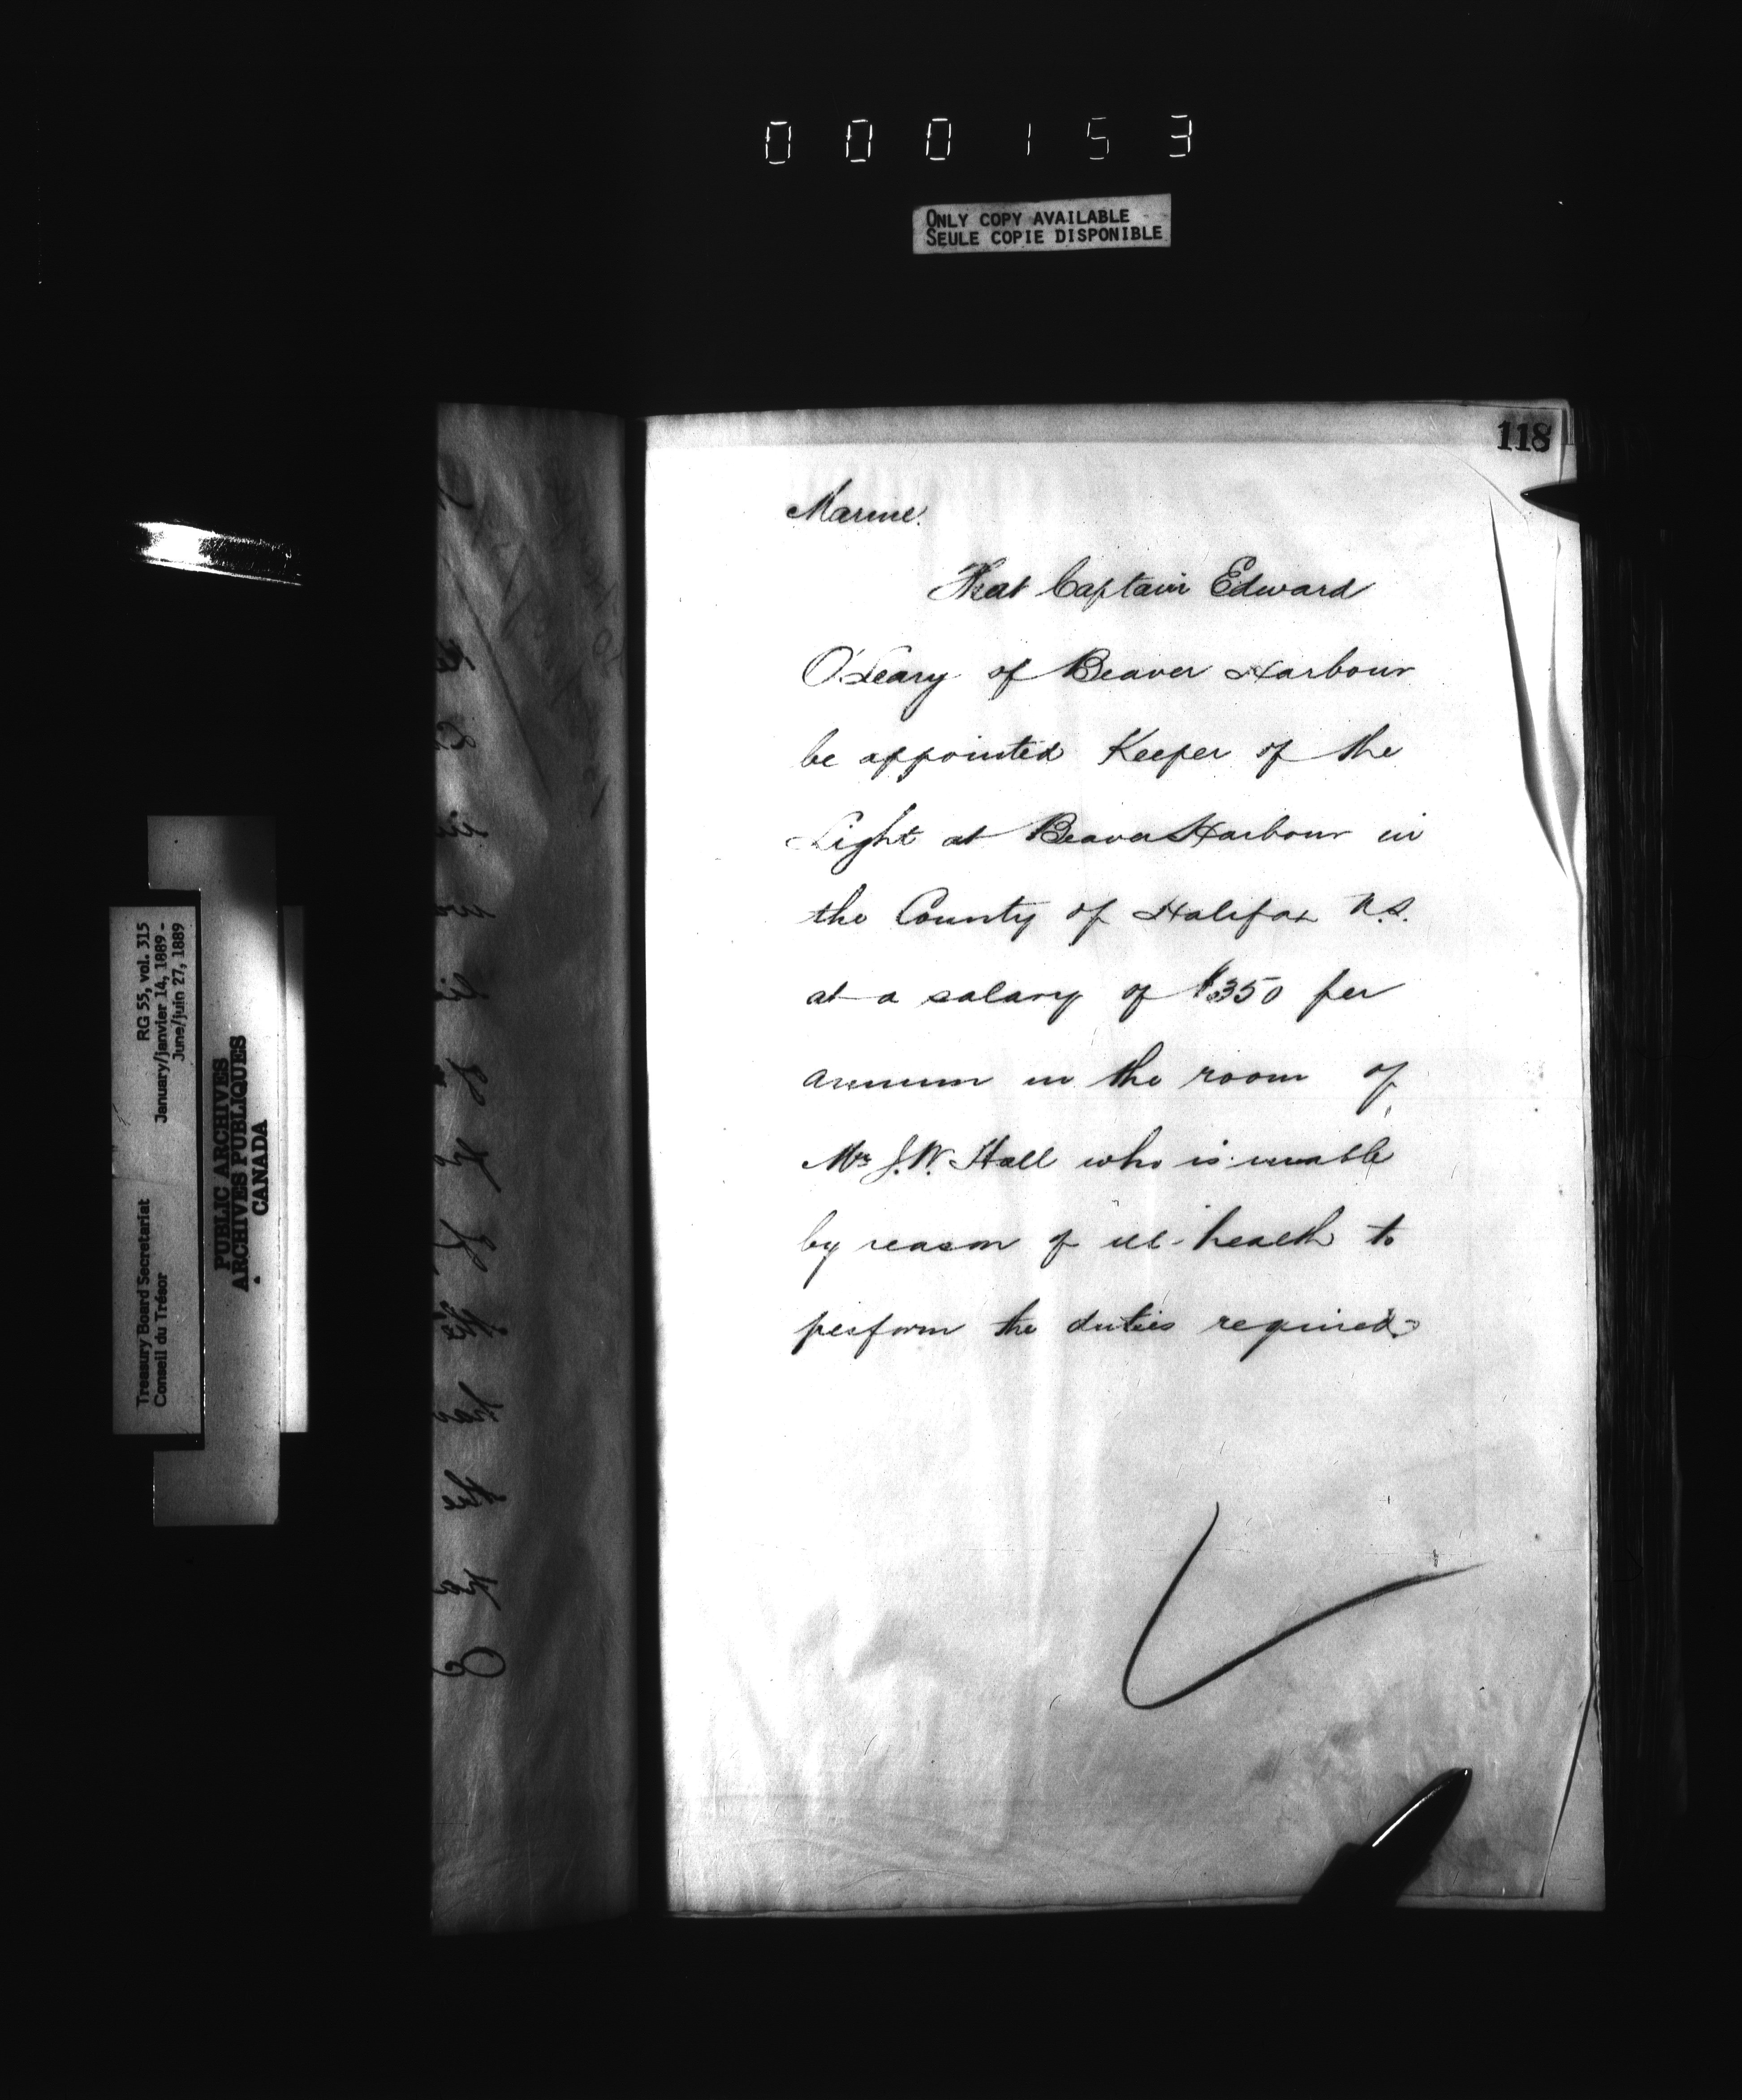 000153
ONLY COPY AVAILABLE
SEULE COPIE DISPONIBLE
118
Marine.
That Captain Edward
O'Leary of Beaver Harbour
be appointed Keeper of the
Light at Beaver Harbour in
the County of Halifax N.S.
at a salary of $350 per
annum in the room of
Mr J.W. Hall who is unable
by reason of ill-health to
perform the duties required
Treasury Board Secretariat RG 55, vol. 315
Conseil du Trésor January/janvier 14, 1889 -
June/juin 27, 1889
PUBLIC ARCHIVES
ARCHIVES PUBLIQUES
CANADA